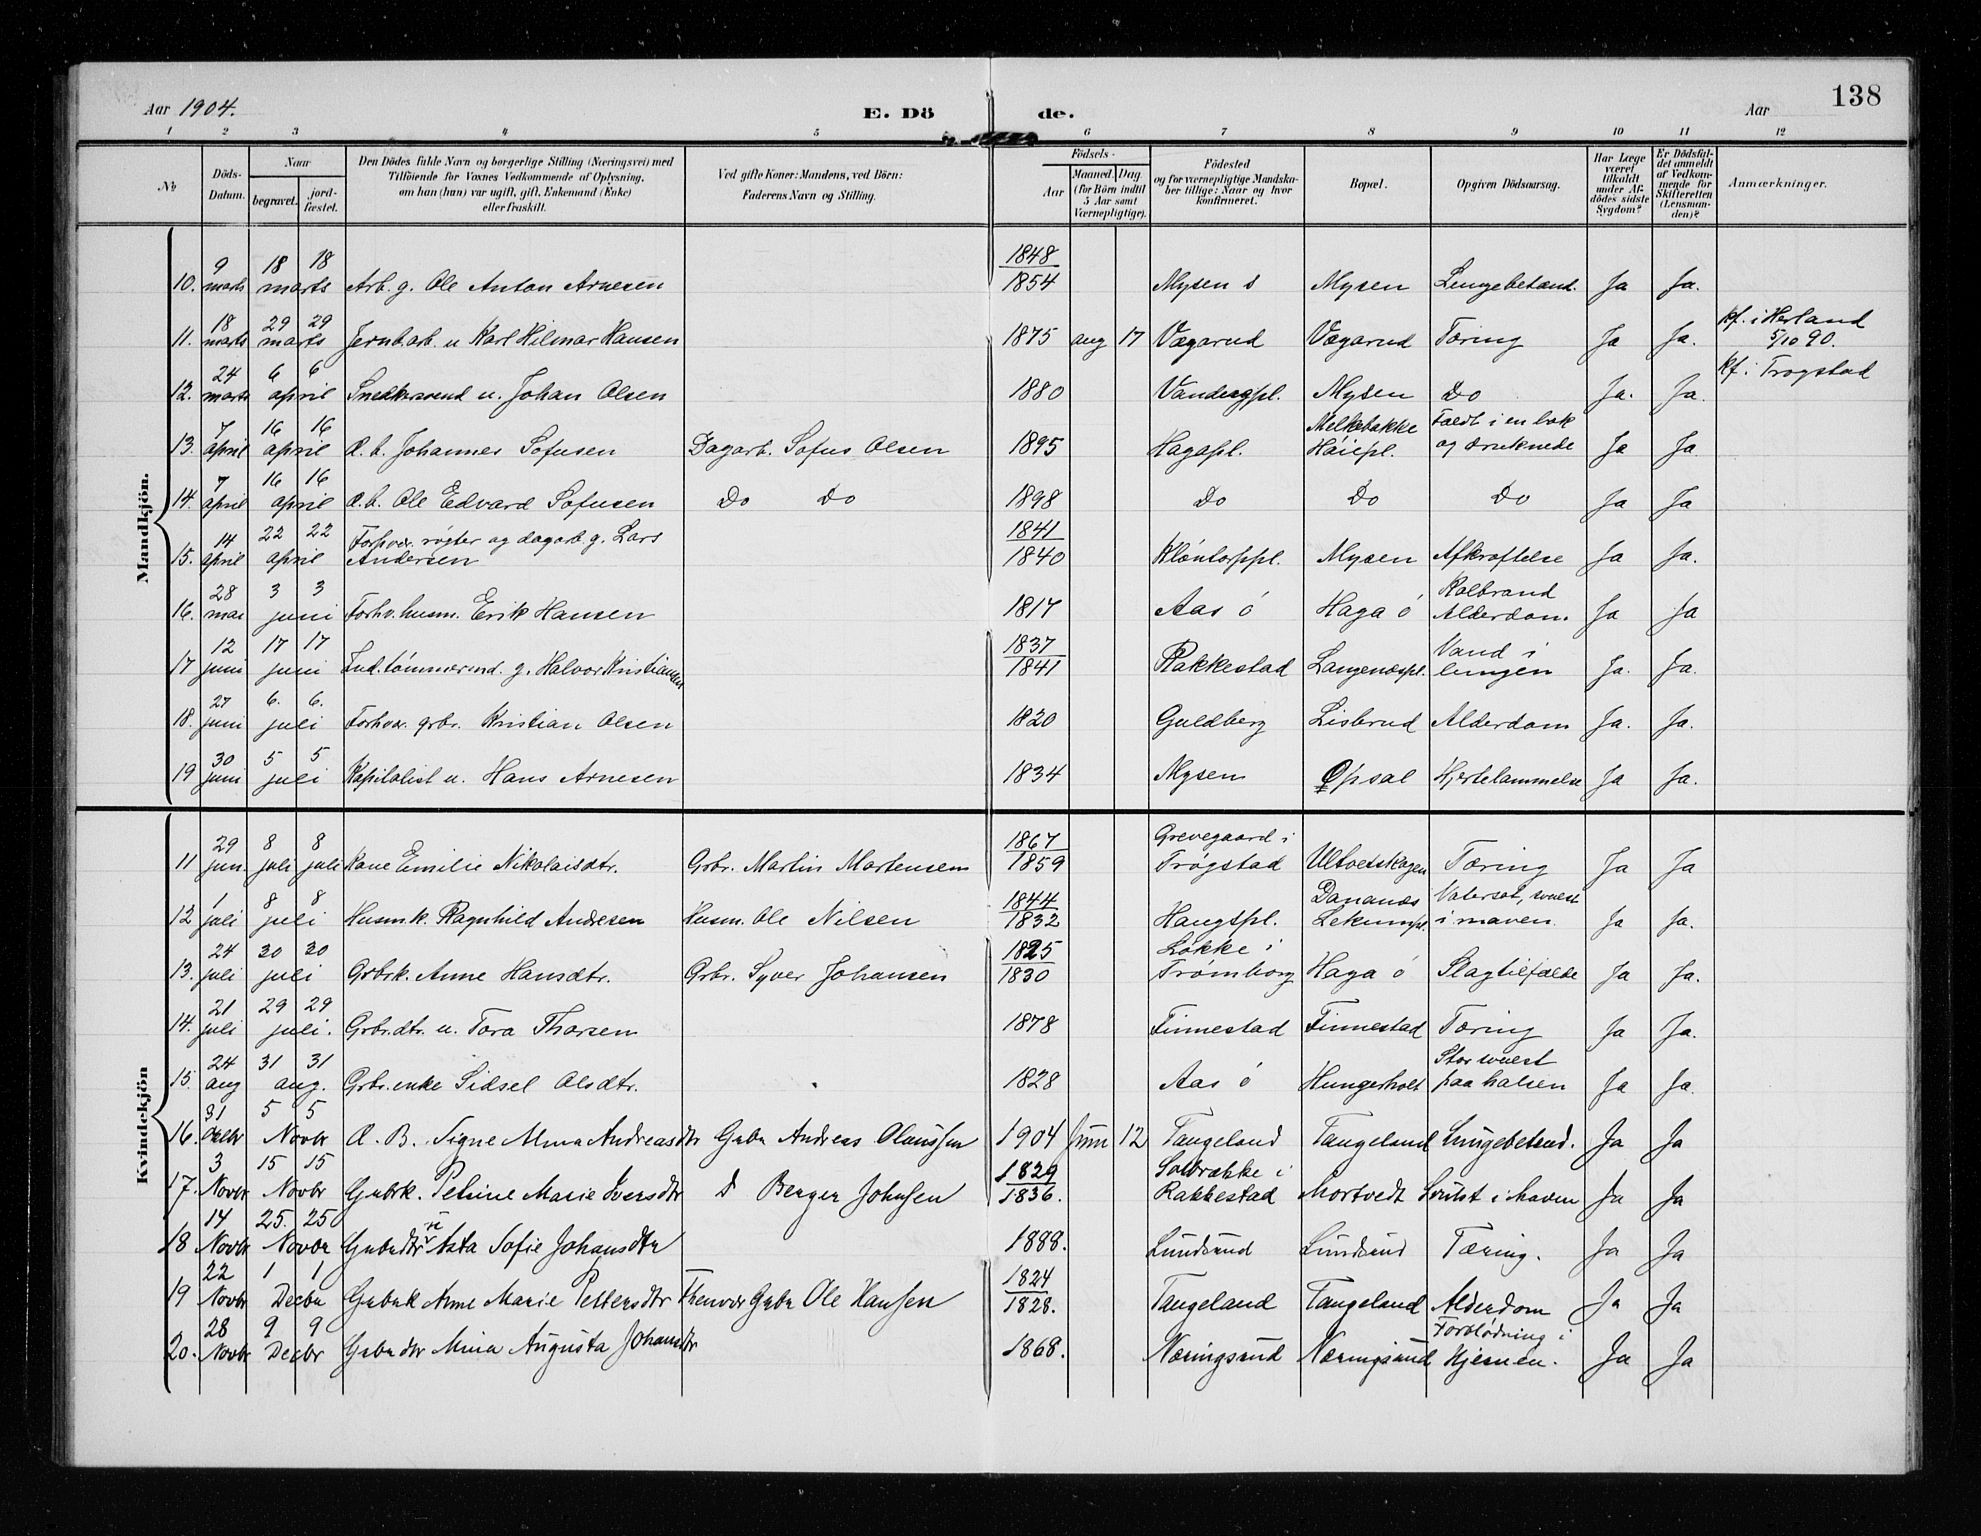 Aar 1904.
E. Dö de.
Aar
138
1 2 3 4 5 6 7 8 9 10 11 12
No
Döds-Datum.
Naar
begravet.
jord-fæstet.
Den Dödes fulde Navn og borgerlige Stilling (Næringsvei) med
Tilföiende for Voxnes Vedkommende af Oplysning,
om han (hun) var ugift, gift, Enkemand (Enke)
eller fraskilt.
Ved gifte Koner: Mandens, ved Börn:
Faderens Navn og Stilling.
Födsels-
Aar
Maaned. Dag.
(for Börn indtil
5 Aar samt
Værnepligtige).
Födested
og for værnepligtige Mandska-
ber tillige: Naar og hvor
konfirmeret.
Bopæl.
Opgiven Dödsaarsag.
Har Læge
været
tilkaldt
under Af-
dödes sidste
Sygdom?
Er Dödsfal-
det anmeldt
af Vedkom-
mende for
Skifteretten
(Lensman-
den)?
Anmærkninger.
Mandkjön.
10. 9 marts 18 18 marts Arb. g. Ole Anton Arnesen 1848 1854 Mysen s Mysen Lungebetænd. Ja Ja.
11. 18 marts 29 29 marts Jernb.arb. u Karl Hilmar Hansen 1875 aug 17 Vægarud Vægarud Tæring Ja Ja. kf. i Herland 5/10 90.
12. 24 marts 6 6 april Snekkersvend u. Johan Olsen 1880 Mysen Do Ja. Ja. kf. i Trøgstad
13. 7 april 16 16 april æ. b. Johannes Sofusen Dagarb. Sofus Olsen 1895 Hagapl. Melkebakke Høiepl. Faldt i en bæk og druknede Ja Ja
14. 7 april 16 16 april æ. b. Ole Edvard Sofusen Do Do 1898 Do Do Do Ja Ja
15. 14 april 22 22 april Forhvr. røgter og dagarb. g. Lars Andersen 1841 1840 Kløntorppl. Mysen Afkræftelse Ja Ja.
16. 28 mai 3 3 juni Forhv. husm. Erik Hansen 1817 Aas ø Haga ø Kolbrand Alderdom Ja Ja
17 12 juni 17 17 juni Ind. tømmermd. g. Halvor Kristiansen 1837 1841 Rakkestad Langenæspl. Vand i lungen Ja. Ja.
18. 27 juni 6. 6. juli Forhvr. grbr. Kristian Olsen 1820 Guldberg Lisbrud Alderdom Ja. Ja.
19 30 juni 5 5 juli Kapitalist u. Hans Arnesen 1834 Mysen Opsal Hjertelammelse Ja Ja.
Kvindekjön
11 29 jun. 8 juli 8 juli Kone Emilie Nikolaisdtr. Grbr. Martin Mortensen 1867 1859 Grevegaard i Trøgstad Ultvetskogen Tæring Ja Ja
12 1 juli 8 8 juli Husmk. Ragnhild Andresen Husm. Ole Nilsen 1844 1832 Haugspl. Lekumpl. Vatersot, svulst i maven. Ja Ja.
13. 24 juli 30 30 juli Grbrk. Anne Hansdtr. Grbr. Syver Johansen 1825 1830 Løkke i Trømborg Haga ø Slagtilfælde Ja Ja.
14. 21 juli 29 29 juli. Grbr.dtr. u. Tora Thorsen 1878 Finnestad Finnestad Tæring Ja Ja.
15. 24 aug 31 31 aug. Grbr.enke Sidsel Olsdtr. 1828 Aas ø Hungerholt Stor svulst paa halsen Ja Ja.
16. 31 Octbr 5 5 Novbr Æ. B. Signe Alma Andreasdtr Gubr Andreas Olaussen 1904 Juni 12 Taugeland Taugeland Lungebetænd. Ja Ja
17. 3 Novbr 15 15 Novbr Gubrk. Petrine Marie Iversdtr D Berger Johnsen 1829 1836. Solbrække i Rakkestad Mortvedt Svulst i Maven Ja Ja
18 14 Novbr 25. 25 Novbr Gubrdtr u Asta Sofie Johansdtr 1888. Lundsrud Lundsrud Tæring. Ja Ja
19 22 Novbr 1 1 Decbr Gubrk Anne Marie Pettersdtr Fhenvær Gubr Ole Hansen 1824 1828. Taugeland Taugeland Alderdom Ja Ja
20. 28 Novbr 9 9 Decbr Gubrdtr Mina Augusta Johansdtr 1868. Næringsrud Næringsrud Forblødning i Hjernen. Ja Ja